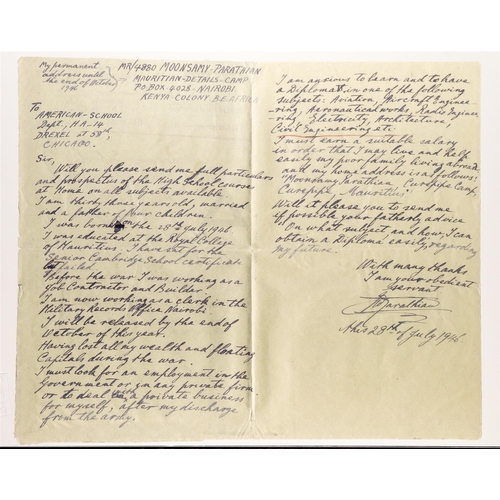 My permanent
address until
the end of October
1946
MR/4880 MOONSAMY-PARATHIAN
MAURITIAN-DETAILS-CAMP.
P.O. BOX-4025-NAIROBI.
KENYA-COLONY. B.E. AFRICA
To
AMERICAN-SCHOOL
Dept, H.A-14.
DREXEL at 58th,
CHICAGO.
Sir,
Will you please send me full particulars
and prospectus of the High School courses
at Home on all subjects available.
I am thirty three years old, married
and a father of four children.
I was born on the 28th July 1906
I was educated at the Royal College
of Mauritius. I have sat for the
Senior Cambridge School certificate
but failed.
Before the war I was working as a
Job Contractor and Builder.
I am now working as a clerk in the
Military Records Office, Nairobi
I will be released by the end of
October of this year.
Having lost all my wealth and floating
Capitals during the war.
I must look for an employment in the
Government or in any private firm
or to deal in a private business
for myself, after my discharge
from the army.
I am anxious to learn and to have
a Diploma in one of the following
subjects: Aviation, Aircraft Enginee-
ring, Aeronautical works, Radio Enginee-
ring, Electricity, Architecture,
Civil Engineering etc.
I must earn a suitable salary
in order that I may live and help
easily my poor family living abroad,
and my home address is as follows:
Moonsamy Parathian, Curepipe Camp,
Curepipe - Mauritius.
Will it please you to send me
if possible your fatherly advice
On what subject and how, I can
obtain a Diploma easily, regarding
my future.
With many thanks
I am your obedient
servant
Parathian
This 28th of July 1946